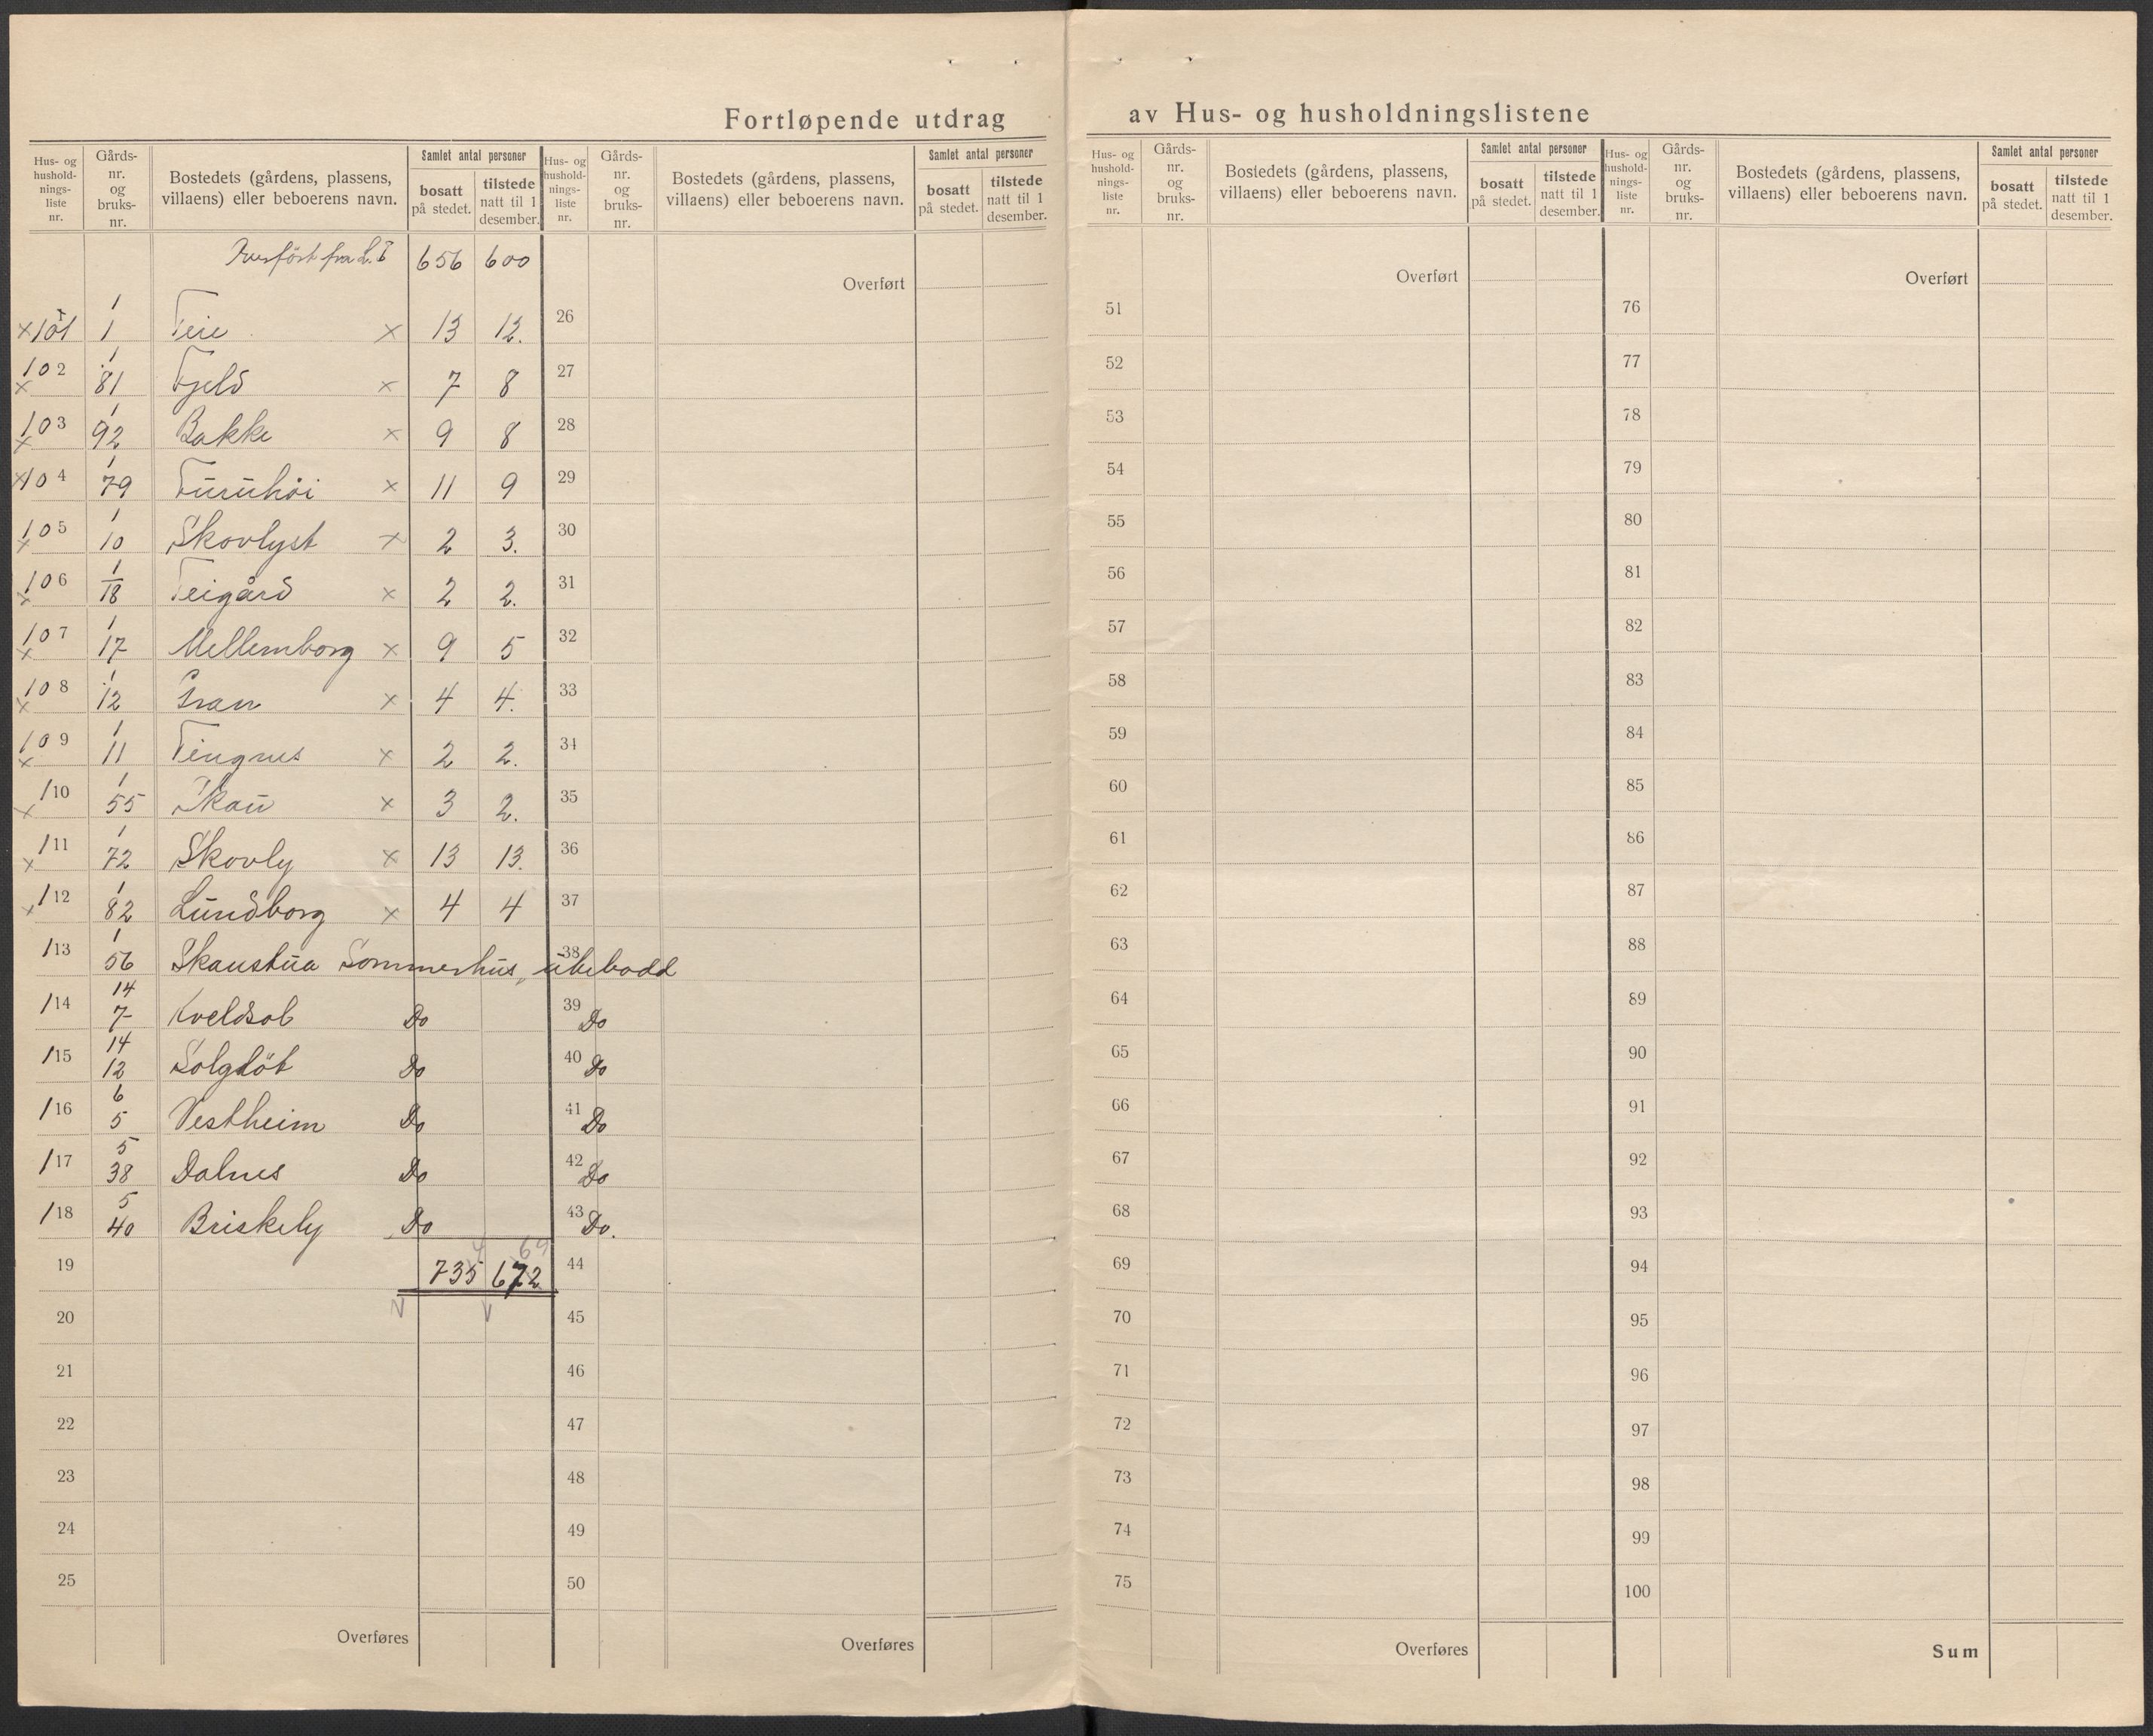 Fortløpende utdrag av Hus- og husholdningslistene
Hus- og hushold-nings-liste nr. Gårds-nr. og bruks-nr. Bostedets (gårdens, plassens, villaens) eller beboerens navn. Samlet antal personer bosatt på stedet. tilstede natt til 1 desember.
Hus- og hushold-nings-liste nr. Gårds-nr. og bruks-nr. Bostedets (gårdens, plassens, villaens) eller beboerens navn. Samlet antal personer bosatt på stedet. tilstede natt til 1 desember.
Hus- og hushold-nings-liste nr. Gårds-nr. og bruks-nr. Bostedets (gårdens, plassens, villaens) eller beboerens navn. Samlet antal personer bosatt på stedet. tilstede natt til 1 desember.
Hus- og hushold-nings-liste nr. Gårds-nr. og bruks-nr. Bostedets (gårdens, plassens, villaens) eller beboerens navn. Samlet antal personer bosatt på stedet. tilstede natt til 1 desember.
fra 656 600
Overført
Overført
Overført
×101 1/1 Teie × 13 12.
×102 1/81 Fjeld × 7 8
×103 1/92 Bakke × 9 8
×104 1/79 Furuhöi × 11 9
×105 1/10 Skovlyst × 2 3.
×106 1/18 Teigård × 2 2.
×107 1/17 Mellemborg × 9 5
×108 1/12 Gran × 4 4.
×109 1/11 × 2 2.
×110 1/55 Skau × 3 2.
×111 1/72 Skovly × 13 13.
×112 1/82 Lundborg × 4 4
113 1/56 Skaustua Sommerhus, ubebodd
114 14/7 Kveldsol Do Do
115 14/12 Solglöt Do Do
116 6/5 Vestheim Do Do
117 5/38 Dalnes Do Do
118 5/40 Briskely Do Do.
19 735 672
20
21
22
23
24
25
Overføres
26
27
28
29
30
31
32
33
34
35
36
37
38
39
40
41
42
43
44
45
46
47
48
49
50
Overføres
51
52
53
54
55
56
57
58
59
60
61
62
63
64
65
66
67
68
69
70
71
72
73
74
75
Overføres
76
77
78
79
80
81
82
83
84
85
86
87
88
89
90
91
92
93
94
95
96
97
98
99
100
Sum